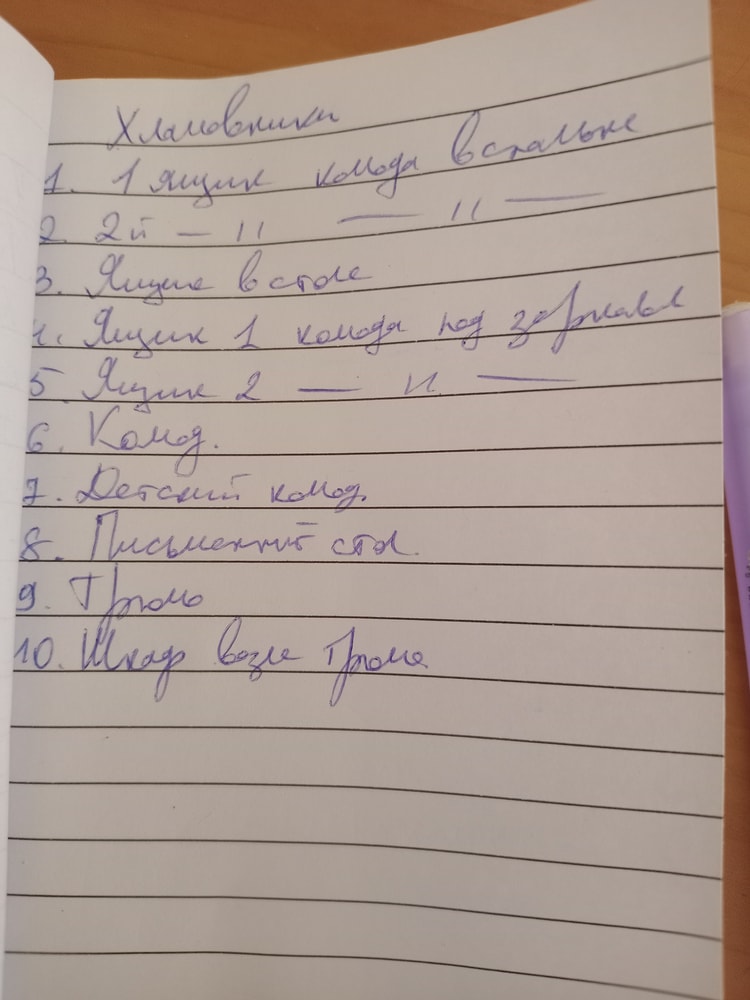 Хламовники
1. 1 ящик комода в спальне
2. 2й — 11 — 11 —
3. Ящик в столе
4. Ящик 1 комода под зеркалом
5. Ящик 2 — 11 —
6. Комод.
7. Детский комод.
8. Письменный стол.
9. Трюмо
10. Шкаф возле трюмо